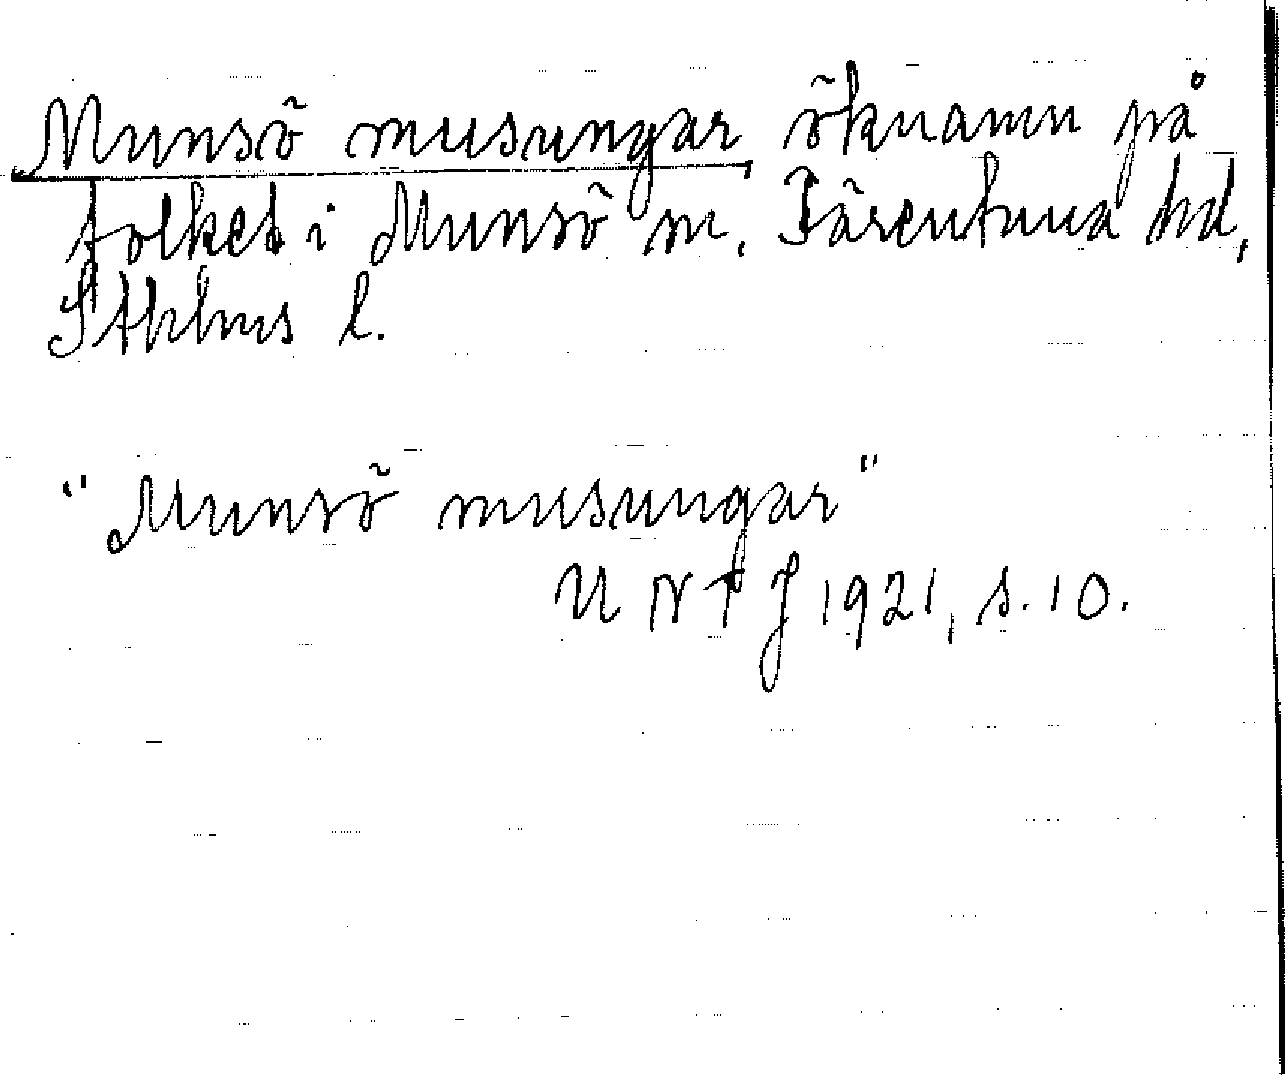 Munsö musungar, öknamn på
folket i Munsö sn, Färentuna hd,
Sthlms l.
"Munsö musungar"
UNTJ 1921, s. 10.